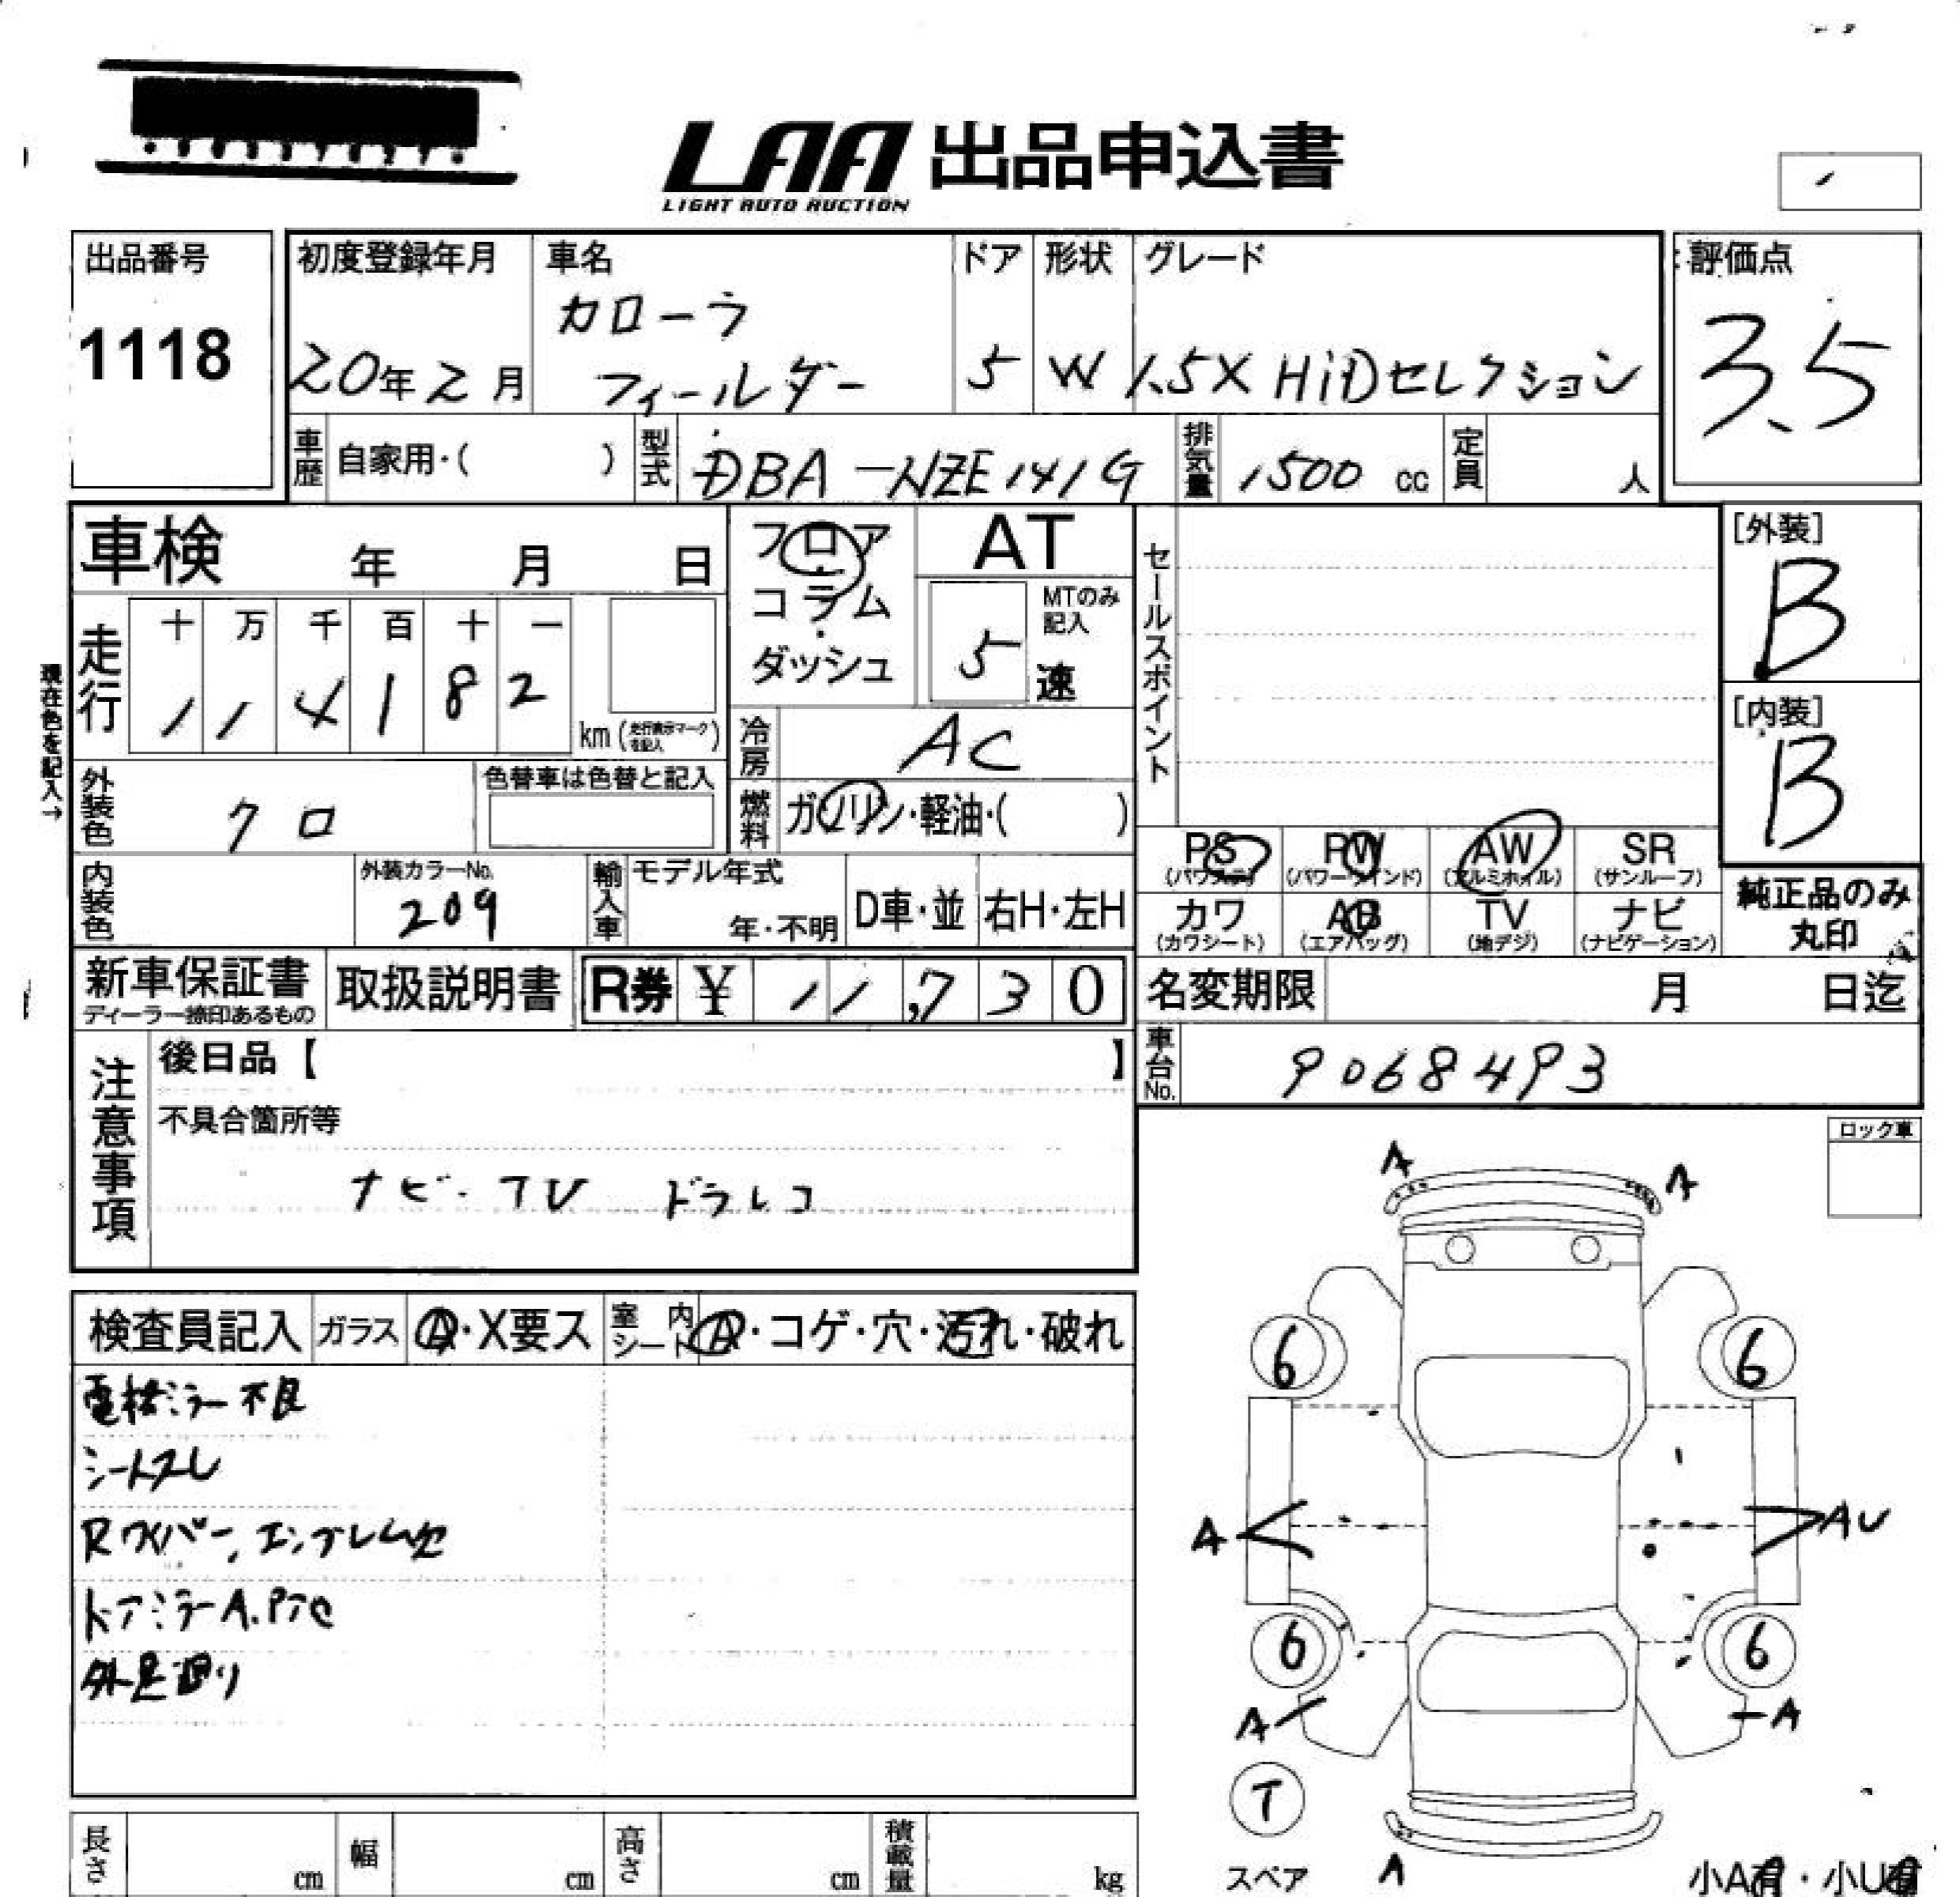 LAA 出品申込書
LIGHT AUTO AUCTION
出品番号
1118
初度登録年月
20年2月
車名
カローラ
フィールダー
ドア
5
形状
W
グレード
1.5X HiDセレクション
評価点
3.5
車歴
自家用・(　　)
型式
DBA-NZE141G
排気量
1500 cc
定員
人
車検
年　月　日
フロア
コラム
・
ダッシュ
AT
MTのみ
記入
5
速
セールスポイント
[外装]
B
[内装]
B
現在色を記入→
走行
十 万 千 百 十 一
1 1 4 1 8 2
km(走行表示マークを記入)
冷房
AC
外装色
クロ
色替車は色替と記入
燃料
ガソリン・軽油・(　　)
PS
(パワステ)
PW
(パワーウインド)
AW
(アルミホイル)
SR
(サンルーフ)
カワ
(カワシート)
AB
(エアバッグ)
TV
(地デジ)
ナビ
(ナビゲーション)
純正品のみ
丸印
内装色
外装カラーNo.
209
輸入車
モデル年式
年・不明
D車・並
右H・左H
新車保証書
ディーラー捺印あるもの
取扱説明書
R券 ¥ 11,730
名変期限
月　日迄
車台No.
9068493
注意事項
後日品【　　】
不具合箇所等
ナビ・TV ドラレコ
ロック車
検査員記入
ガラス
A・X要ス
室内
シート
A・コゲ・穴・汚れ・破れ
電格ミラー不良
シートスレ
Rワイパー、エンブレム欠
ドアミラーA.P
外足廻り
A
A
6
6
A
AU
6
6
A
A
T
スペア
A
小A有・小U有
長さ
cm
幅
cm
高さ
cm
積載量
kg